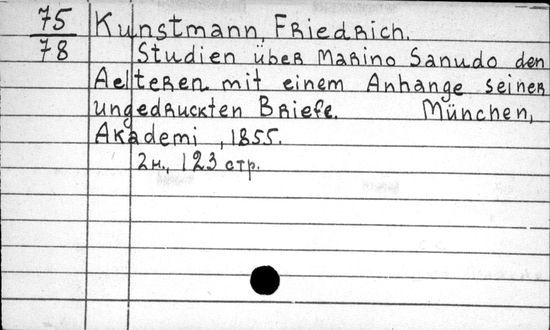 75 Kunstmann, Friedrich.
78 Studien über Marino Sanudo den
Aelteren mit einem Anhange seiner
ungedruckten Briefe. München,
Akademi , 1855.
2н., 123 стр.